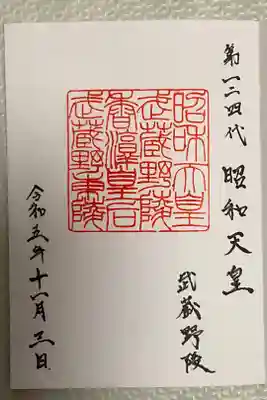 第一二四代 昭和天皇
武蔵野陵
昭和天皇
武蔵野陵
香淳皇后
武蔵野東陵
令和五年十一月三日